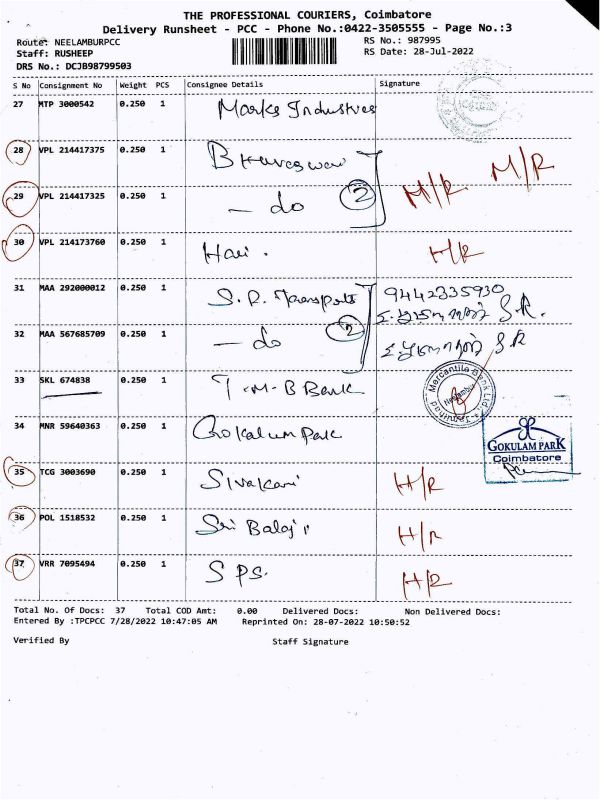 THE PROFESSIONAL COURIERS, Coimbatore
Delivery Runsheet - PCC - Phone No.:0422-3505555 - Page No.:3
Route: NEELAMBURPCC RS No.: 987995
Staff: RUSHEEP RS Date: 28-Jul-2022
DRS No.: DCJB98799503
S No Consignment No Weight PCS Consignee Details Signature
27 MTP 3000542 0.250 1 Marks Industries
28 VPL 214417375 0.250 1 M/R
29 VPL 214417325 0.250 1 - do 2 H/R
30 VPL 214173760 0.250 1 Hari . H/R
31 MAA 292000012 0.250 1 S. R. Transports 9442335930 S.R.
32 MAA 567685709 0.250 1 - do 2 S R
33 SKL 674838 0.250 1 T-M-B Bank Mercantile Bank Ltd.
34 MNR 59640363 0.250 1 Gokulum Park
GOKULAM PARK
Coimbatore
35 TCG 3003690 0.250 1 Sivakani H/R
36 POL 1518532 0.250 1 Sri Balaji H/R
37 VRR 7095494 0.250 1 SPS. H/R
Total No. Of Docs: 37 Total COD Amt: 0.00 Delivered Docs: Non Delivered Docs:
Entered By :TPCPCC 7/28/2022 10:47:05 AM Reprinted On: 28-07-2022 10:50:52
Verified By Staff Signature